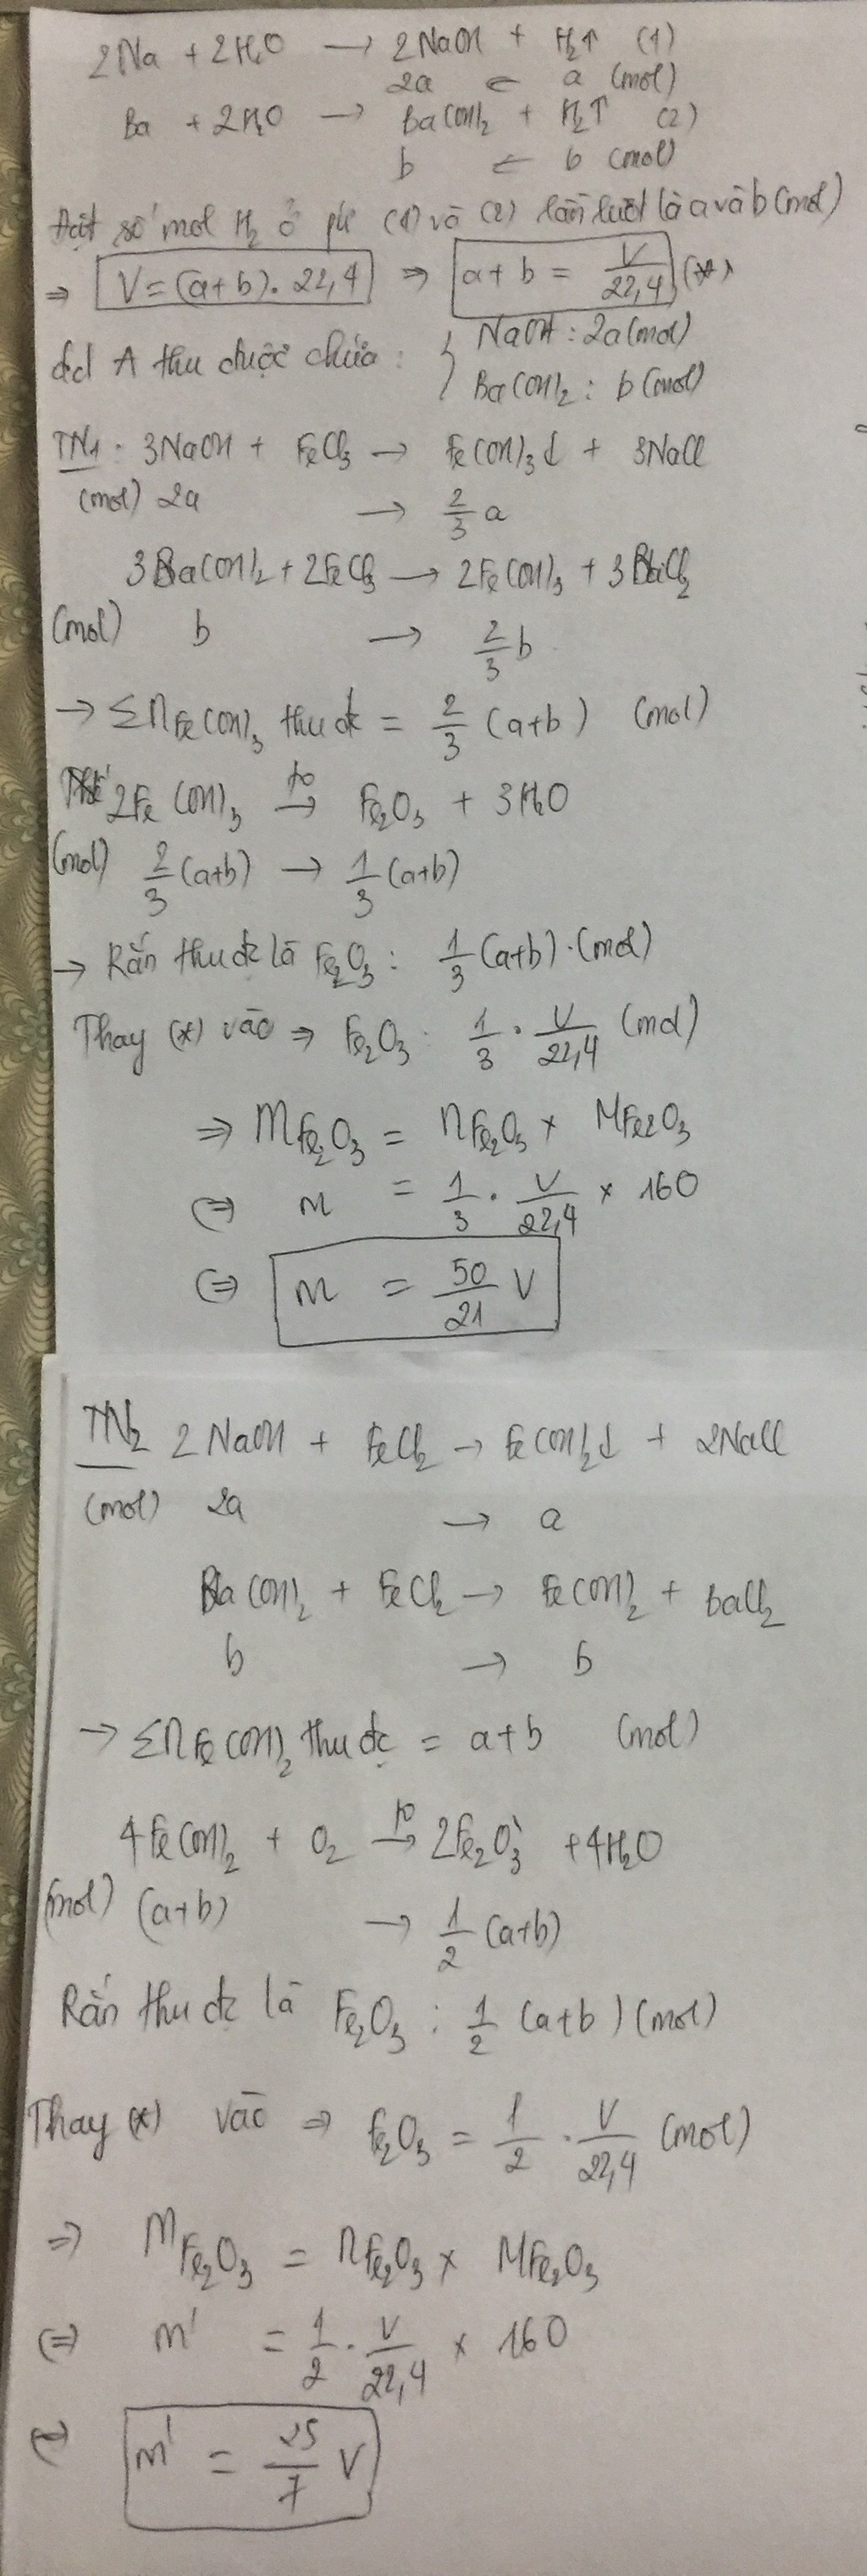 2Na + 2H₂O → 2NaOH + H₂↑ (1)
2a ← a (mol)
Ba + 2H₂O → Ba(OH)₂ + H₂↑ (2)
b ← b (mol)
Đặt số mol H₂ ở pứ (1) và (2) lần lượt là a và b (mol)
⇒ V = (a+b). 22,4 ⇒ a + b = V/22,4 (*)
dd A thu được chứa : { NaOH : 2a (mol)
Ba(OH)₂ : b (mol)
TN1. 3NaOH + FeCl₃ → Fe(OH)₃↓ + 3NaCl
(mol) 2a → 2/3 a
3Ba(OH)₂ + 2FeCl₃ → 2Fe(OH)₃ + 3BaCl₂
(mol) b → 2/3 b
→ Σn Fe(OH)₃ thu đc = 2/3 (a+b) (mol)
2Fe(OH)₃ →(t⁰) Fe₂O₃ + 3H₂O
(mol) 2/3 (a+b) → 1/3 (a+b)
→ Rắn thu đc là Fe₂O₃ : 1/3 (a+b) . (mol)
Thay (*) vào ⇒ Fe₂O₃ : 1/3 . V/22,4 (mol)
⇒ mFe₂O₃ = nFe₂O₃ × MFe₂O₃
⇔ m = 1/3 . V/22,4 × 160
⇔ m = 50/21 V
TN2 2NaOH + FeCl₂ → Fe(OH)₂↓ + 2NaCl
(mol) 2a → a
Ba(OH)₂ + FeCl₂ → Fe(OH)₂ + BaCl₂
b → b
→ Σn Fe(OH)₂ thu đc = a+b (mol)
4Fe(OH)₂ + O₂ →(t⁰) 2Fe₂O₃ + 4H₂O
(mol) (a+b) → 1/2 (a+b)
Rắn thu đc là Fe₂O₃ : 1/2 (a+b) (mol)
Thay (*) vào ⇒ Fe₂O₃ = 1/2 . V/22,4 (mol)
⇒ mFe₂O₃ = nFe₂O₃ × MFe₂O₃
⇔ m' = 1/2 . V/22,4 × 160
⇔ m' = 25/7 V